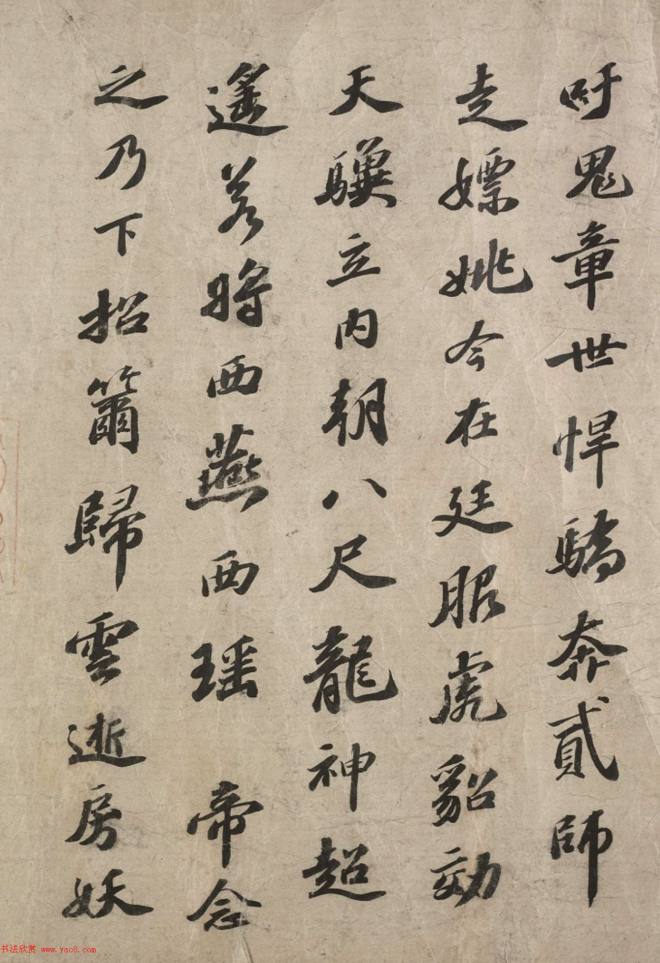 吁鬼章世悍驕奔貳師
走嫖姚今在廷服虎貂効
天驥立内朝八尺龍神超
遙若將西燕西瑶 帝念
之乃下招籋歸雲逝房妖
书法欣赏 www.yac8.com